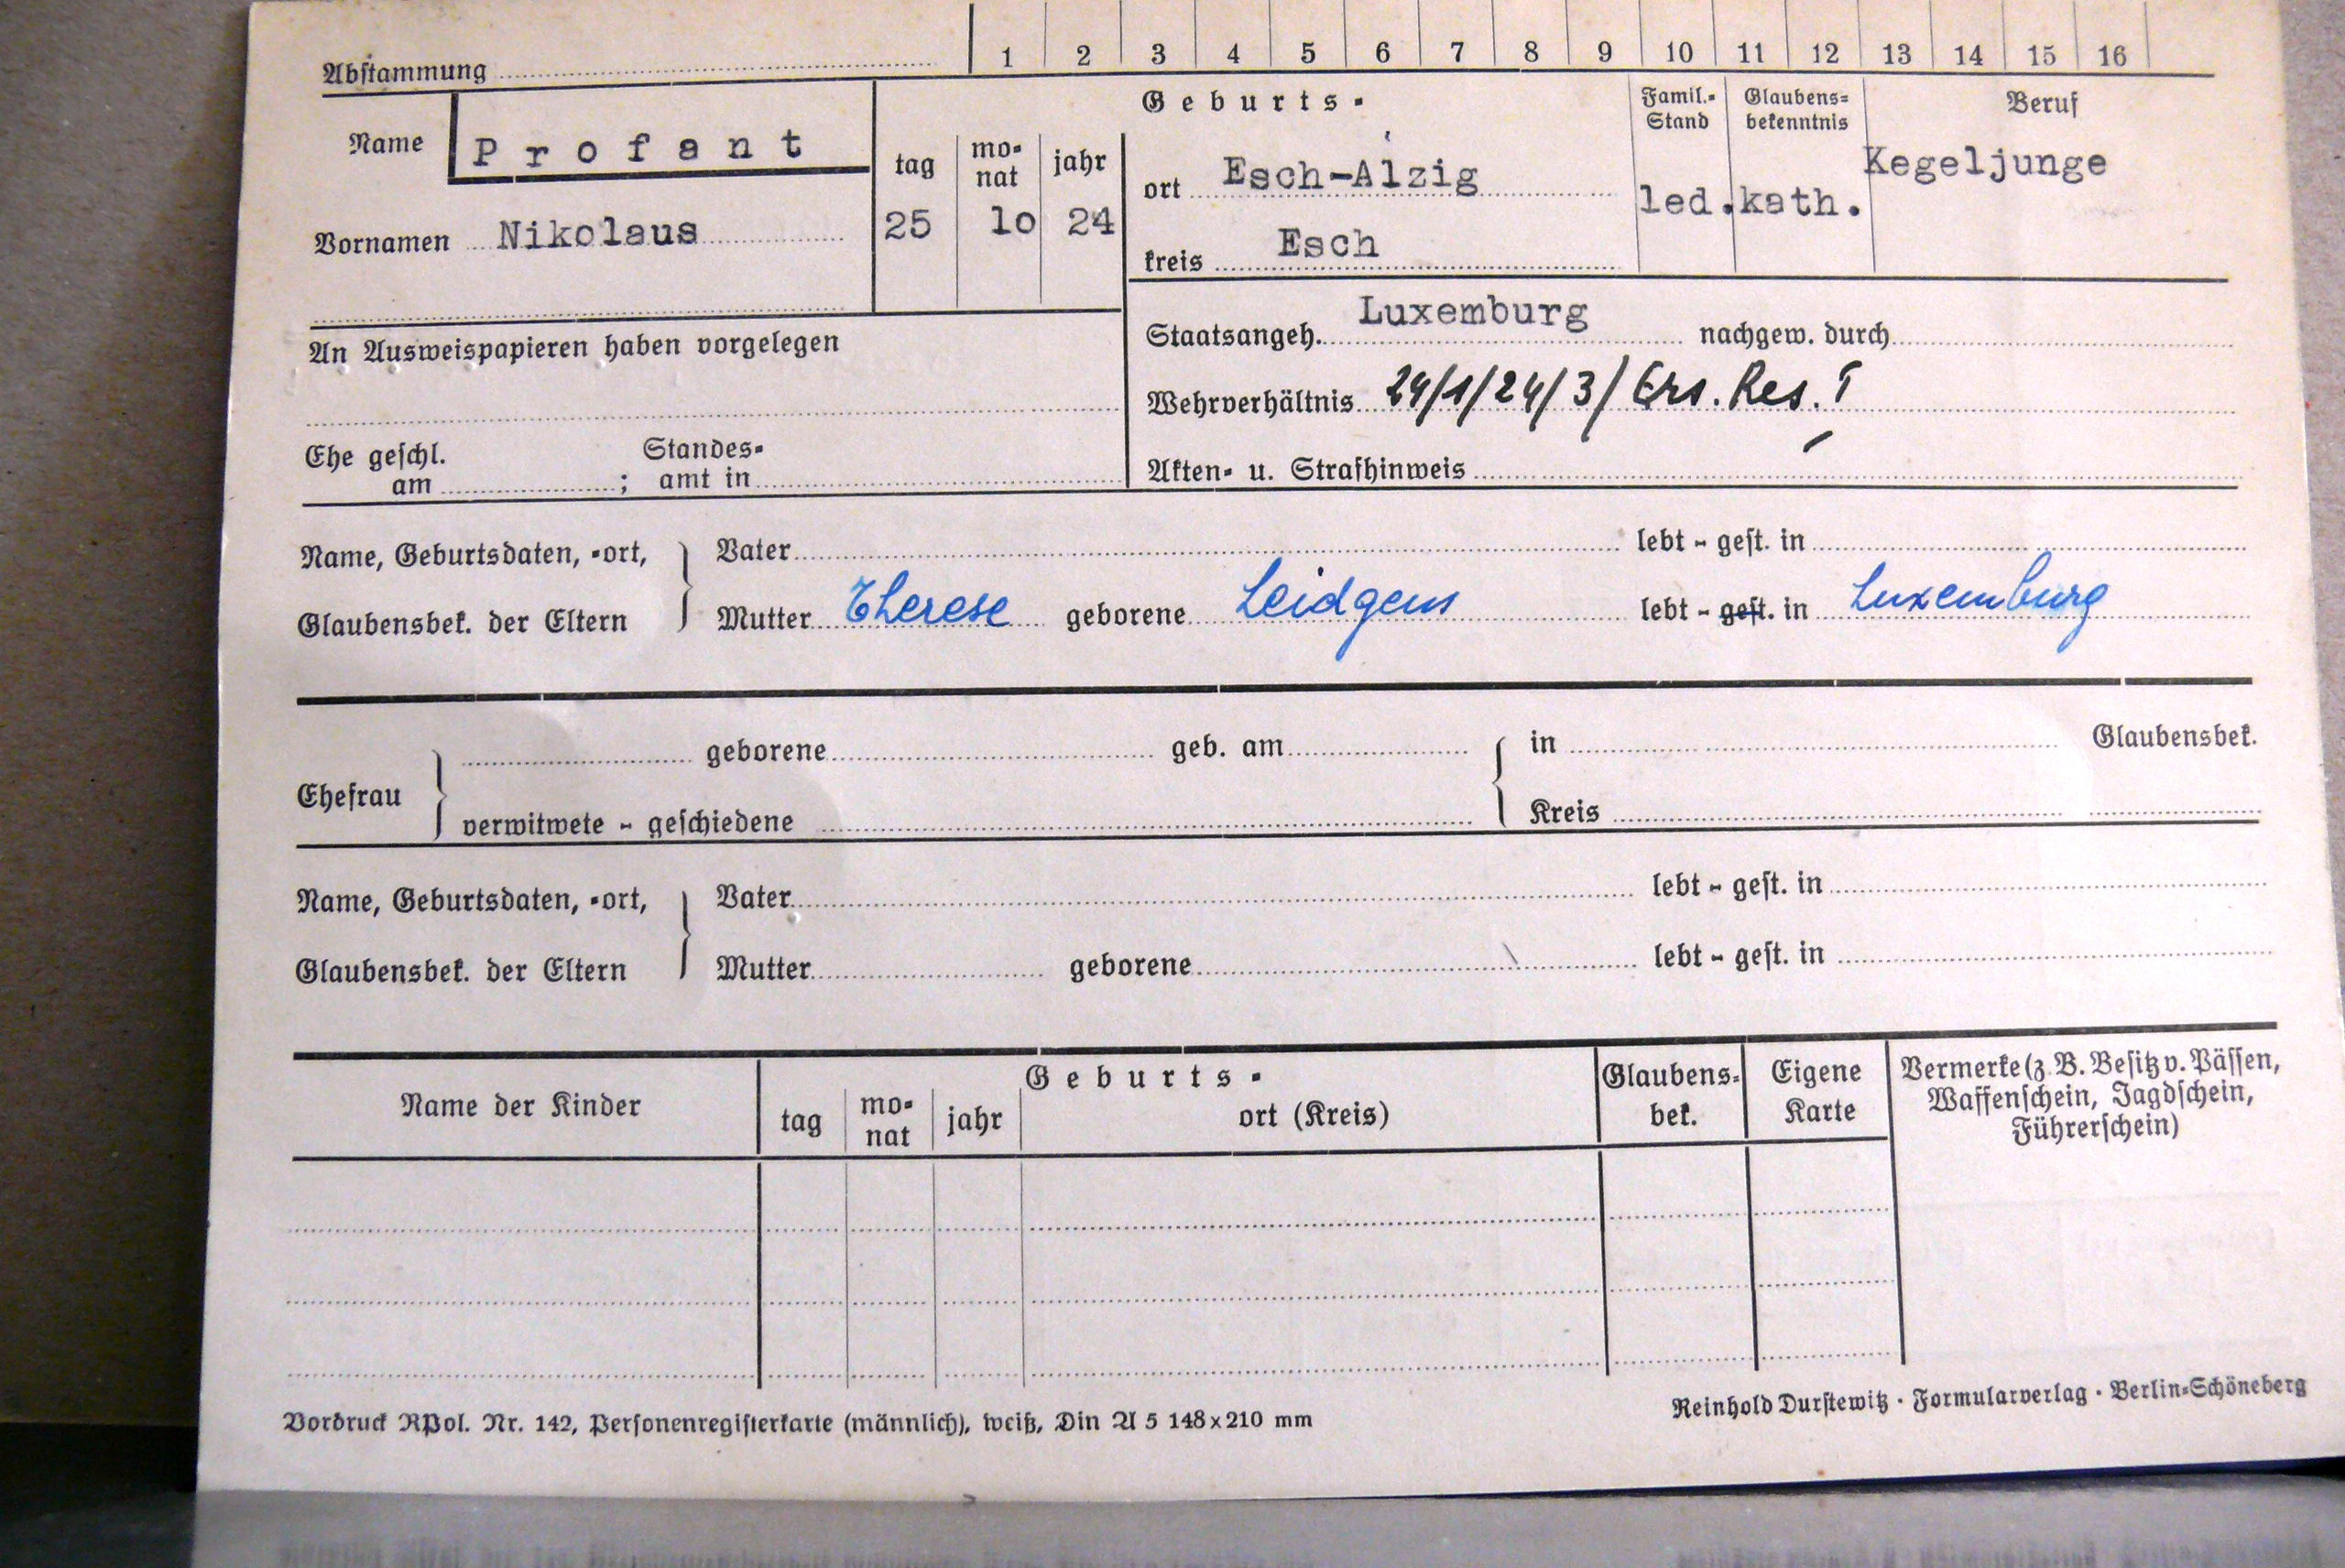 Abstammung 1 2 3 4 5 6 7 8 9 10 11 12 13 14 15 16
Name Profant
Vornamen Nikolaus
Geburts-
tag monat jahr
25 10 24
ort Esch-Alzig
kreis Esch
Famil.-Stand
led.
Glaubens-bekenntnis
kath.
Beruf
Kegeljunge
An Ausweispapieren haben vorgelegen
Staatsangeh. Luxemburg nachgew. durch
Wehrverhältnis 24/1/24/3/ Ers. Res. I
Ehe geschl. am ; Standes-amt in
Akten- u. Strafhinweis
Name, Geburtsdaten, -ort,
Glaubensbek. der Eltern
Vater lebt - gest. in
Mutter Therese geborene Leidgens lebt - gest. in Luxemburg
Ehefrau
geborene geb. am in Glaubensbek.
verwitwete - geschiedene Kreis
Name, Geburtsdaten, -ort,
Glaubensbek. der Eltern
Vater lebt - gest. in
Mutter geborene lebt - gest. in
Name der Kinder
Geburts-
tag monat jahr ort (Kreis)
Glaubens-bek.
Eigene Karte
Vermerke (z. B. Besitz v. Pässen,
Waffenschein, Jagdschein,
Führerschein)
Vordruck RPol. Nr. 142, Personenregisterkarte (männlich), weiß, Din A 5 148x210 mm
Reinhold Durstewitz · Formularverlag · Berlin-Schöneberg